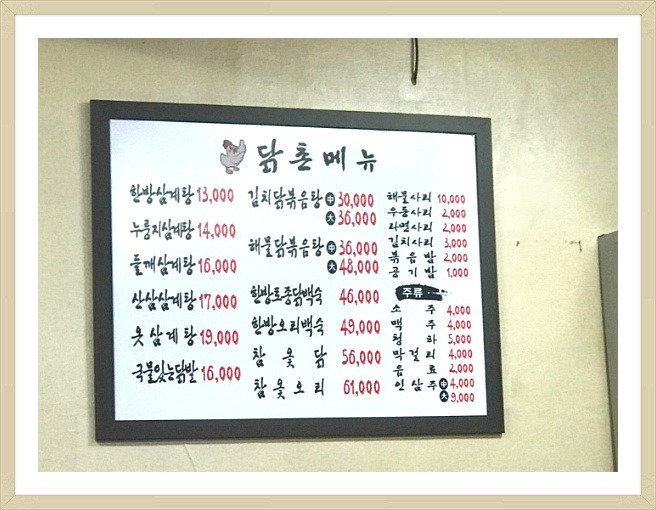 닭촌메뉴
한방삼계탕 13,000
누룽지삼계탕 14,000
들깨삼계탕 16,000
산삼삼계탕 17,000
옷삼계탕 19,000
국물있는닭발 16,000
김치닭볶음탕 中 30,000
大 36,000
해물닭볶음탕 中 36,000
大 48,000
한방토종닭백숙 46,000
한방오리백숙 49,000
참옻닭 56,000
참옻오리 61,000
해물사리 10,000
우동사리 2,000
라면사리 2,000
김치사리 3,000
볶음밥 2,000
공기밥 1,000
주류
소주 4,000
맥주 4,000
청하 5,000
막걸리 4,000
음료 2,000
인삼주 中 4,000
大 9,000